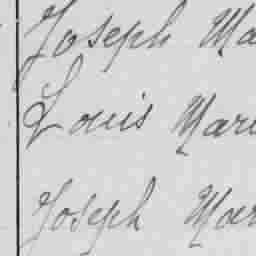 Joseph Ma
Louis Mar
Joseph Mar